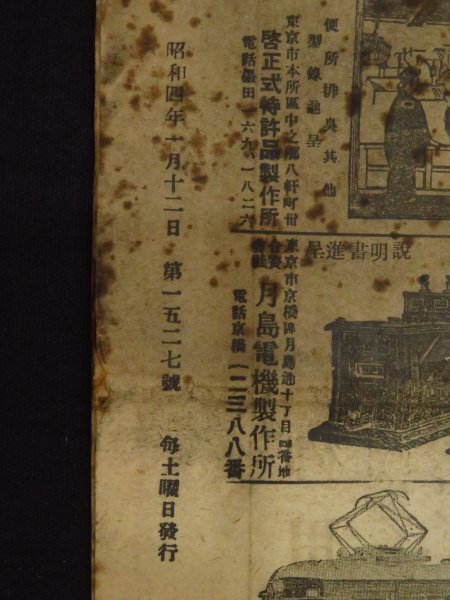 便所排臭其他
型錄進呈
東京市本所區中之郷八軒町卅
啓正式特許品製作所
電話墨田一六九、一八二六
說明書進呈
東京市京橋區月島通十丁目四番地
合資會社 月島電機製作所
電話京橋(一二三八八番
昭和四年一月十二日 第一五二七號 每土曜日發行